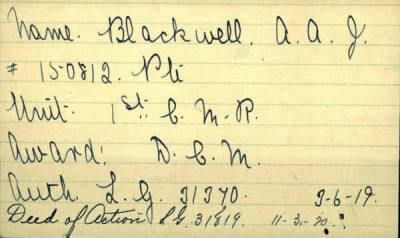 Name. Blackwell. A. A. J.
# 150812. Pte
Unit: 1st C. M. R.
Award: D. C. M.
Auth. L. G. 31370. 3-6-19.
Deed of Action L.G. 31819. 11-3-20.